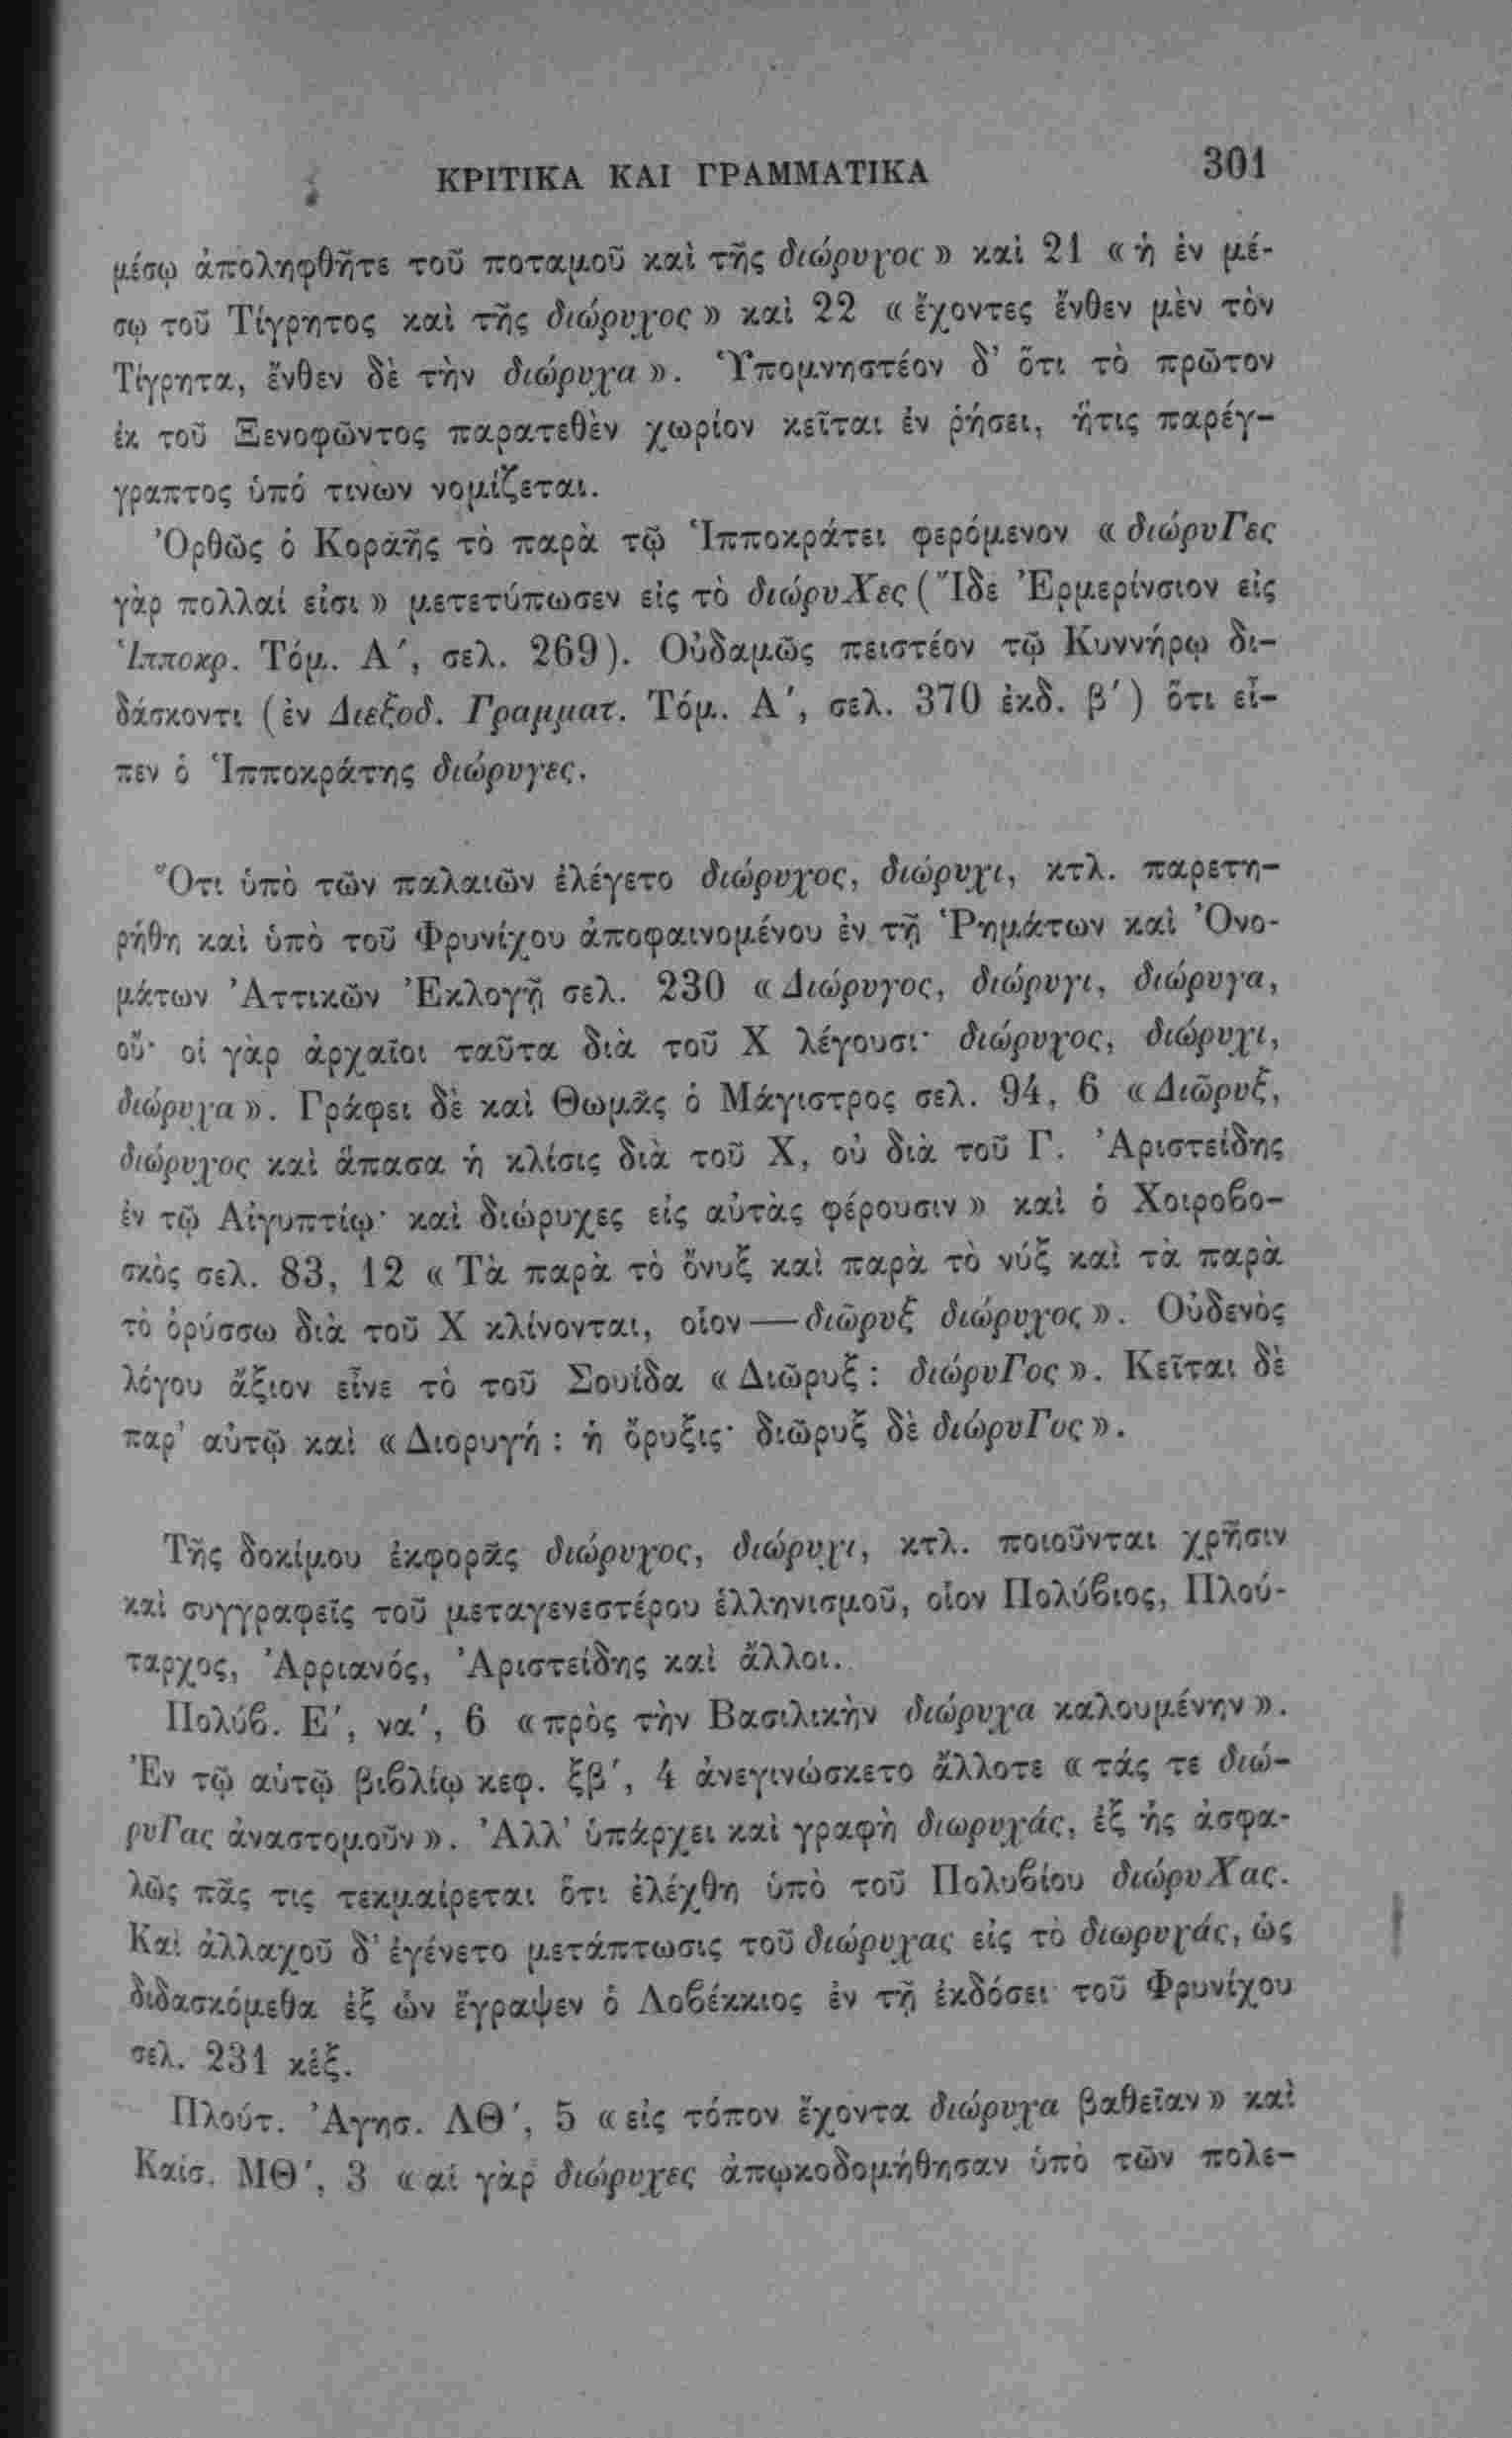 ΚΡΙΤΙΚΑ ΚΑΙ ΓΡΑΜΜΑΤΙΚΑ 301
μέσῳ ἀποληφθῆτε τοῦ ποταμοῦ καὶ τῆς διώρυχος » καὶ 21 « ἡ ἐν μέ-
σῳ τοῦ Τίγρητος καὶ τῆς διώρυχος » καὶ 22 « ἔχοντες ἔνθεν μὲν τὸν
Τίγρητα, ἔνθεν δὲ τὴν διώρυχα ». Ὑπομνηστέον δ' ὅτι τὸ πρῶτον
ἐκ τοῦ Ξενοφῶντος παρατεθὲν χωρίον κεῖται ἐν ῥήσει, ἥτις παρέγ-
γραπτος ὑπό τινων νομίζεται.
Ὀρθῶς ὁ Κοραῆς τὸ παρὰ τῷ Ἱπποκράτει φερόμενον « διώρυΓες
γὰρ πολλαί εἰσι » μετετύπωσεν εἰς τὸ διώρυΧες (Ἴδε Ἐρμερίνσιον εἰς
Ἱπποκρ. Τόμ. Α΄, σελ. 269). Οὐδαμῶς πειστέον τῷ Κυννήρῳ δι-
δάσκοντι (ἐν Διεξοδ. Γραμματ. Τόμ. Α΄, σελ. 370 ἐκδ. β΄) ὅτι εἶ-
πεν ὁ Ἱπποκράτης διώρυγες.
Ὅτι ὑπὸ τῶν παλαιῶν ἐλέγετο διώρυχος, διώρυχι, κτλ. παρετη-
ρήθη καὶ ὑπὸ τοῦ Φρυνίχου ἀποφαινομένου ἐν τῇ Ῥημάτων καὶ Ὀνο-
μάτων Ἀττικῶν Ἐκλογῇ σελ. 230 « Διώρυγος, διώρυγι, διώρυγα,
οὔ· οἱ γὰρ ἀρχαῖοι ταῦτα διὰ τοῦ Χ λέγουσι· διώρυχος, διώρυχι,
διώρυχα ». Γράφει δὲ καὶ Θωμᾶς ὁ Μάγιστρος σελ. 94, 6 « Διῶρυξ,
διώρυχος καὶ ἅπασα ἡ κλίσις διὰ τοῦ Χ, οὐ διὰ τοῦ Γ. Ἀριστείδης
ἐν τῷ Αἰγυπτίῳ· καὶ διώρυχες εἰς αὐτὰς φέρουσιν » καὶ ὁ Χοιροβο-
σκὸς σελ. 83, 12 « Τὰ παρὰ τὸ ὄνυξ καὶ παρὰ τὸ νύξ καὶ τὰ παρὰ
τὸ ὀρύσσω διὰ τοῦ Χ κλίνονται, οἷον — διῶρυξ διώρυχος ». Οὐδενὸς
λόγου ἄξιον εἶνε τὸ τοῦ Σουίδα « Διῶρυξ : διώρυΓος ». Κεῖται δὲ
παρ' αὐτῷ καὶ « Διορυγή : ἡ ὄρυξις· διῶρυξ δὲ διώρυΓος ».
Τῆς δοκίμου ἐκφορᾶς διώρυχος, διώρυχι, κτλ. ποιοῦνται χρῆσιν
καὶ συγγραφεῖς τοῦ μεταγενεστέρου ἑλληνισμοῦ, οἷον Πολύβιος, Πλού-
ταρχος, Ἀρριανός, Ἀριστείδης καὶ ἄλλοι.
Πολύβ. Ε΄, να΄, 6 « πρὸς τὴν Βασιλικὴν διώρυχα καλουμένην ».
Ἐν τῷ αὐτῷ βιβλίῳ κεφ. ξβ΄, 4 ἀνεγινώσκετο ἄλλοτε « τάς τε διώ-
ρυΓας ἀναστομοῦν ». Ἀλλ' ὑπάρχει καὶ γραφὴ διωρυχάς, ἐξ ἧς ἀσφα-
λῶς πᾶς τις τεκμαίρεται ὅτι ἐλέχθη ὑπὸ τοῦ Πολυβίου διώρυΧας.
Καὶ ἀλλαχοῦ δ' ἐγένετο μετάπτωσις τοῦ διώρυχας εἰς τὸ διωρυχάς, ὡς
διδασκόμεθα ἐξ ὧν ἔγραψεν ὁ Λοβέκκιος ἐν τῇ ἐκδόσει τοῦ Φρυνίχου
σελ. 231 κἑξ.
Πλούτ. Ἀγησ. ΛΘ΄, 5 « εἰς τόπον ἔχοντα διώρυχα βαθεῖαν » καὶ
Καίσ. ΜΘ΄, 3 « αἱ γὰρ διώρυχες ἀπῳκοδομήθησαν ὑπὸ τῶν πολε-